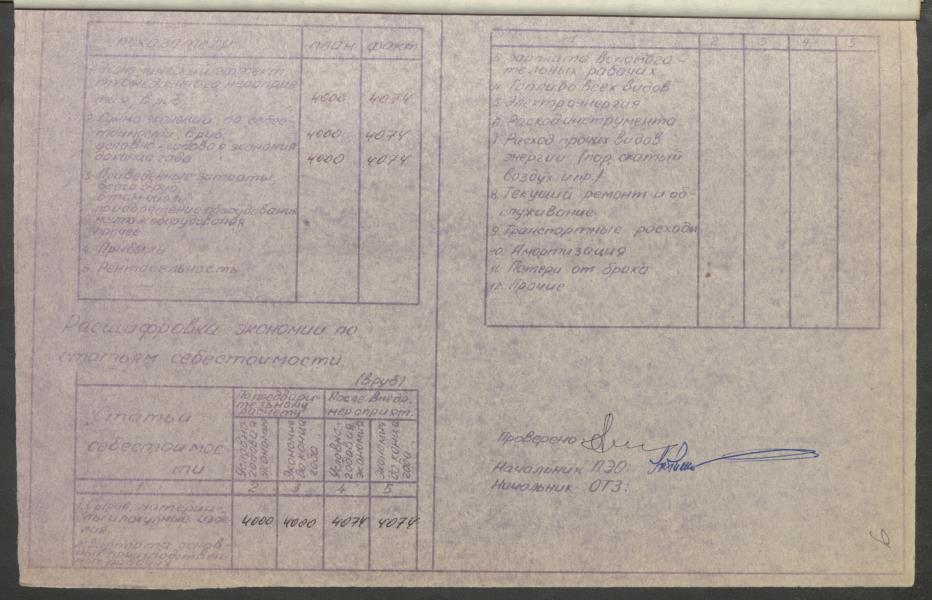 показатели план факт
1. Экономический эффект
от внедренного мероприя
тия, в руб. 4000 4074
2. Сумма экономии по себес-
тоимости, в руб. 4000 4074
условно-годовая экономия
до конца года 4000 4074
3. Приведенные затраты,
всего в руб.
в том числе:
приобретение оборудования
монтаж оборудования
прочее
4. Прибыль
5. Рентабельность
Расшифровка экономии по
статьям себестоимости
(в руб)
Статьи
себестоимос-
ти
По предвари-
тельному
расчету
После внедр.
мероприят.
Условно-
годовая
экономия
Экономия
до конца
года
Условно-
годовая
экономия
Экономия
до конца
года
1 2 3 4 5
1. Сырье, материа-
лы и покупные изде-
лия. 4000 4000 4074 4074
2. Зарплата основ
ных производствен
ных рабочих
1 2 3 4 5
3. Зарплата вспомога-
тельных рабочих
4. Топливо всех видов
5. Электроэнергия
6. Расход инструмента
7. Расход прочих видов
энергии (пар, сжатый
воздух и пр.)
8. Текущий ремонт и об-
служивание
9. Транспортные расходы
10. Амортизация
11. Потери от брака
12. Прочие
Проверено
Начальник ПЭО:
Начальник ОТЗ:
6